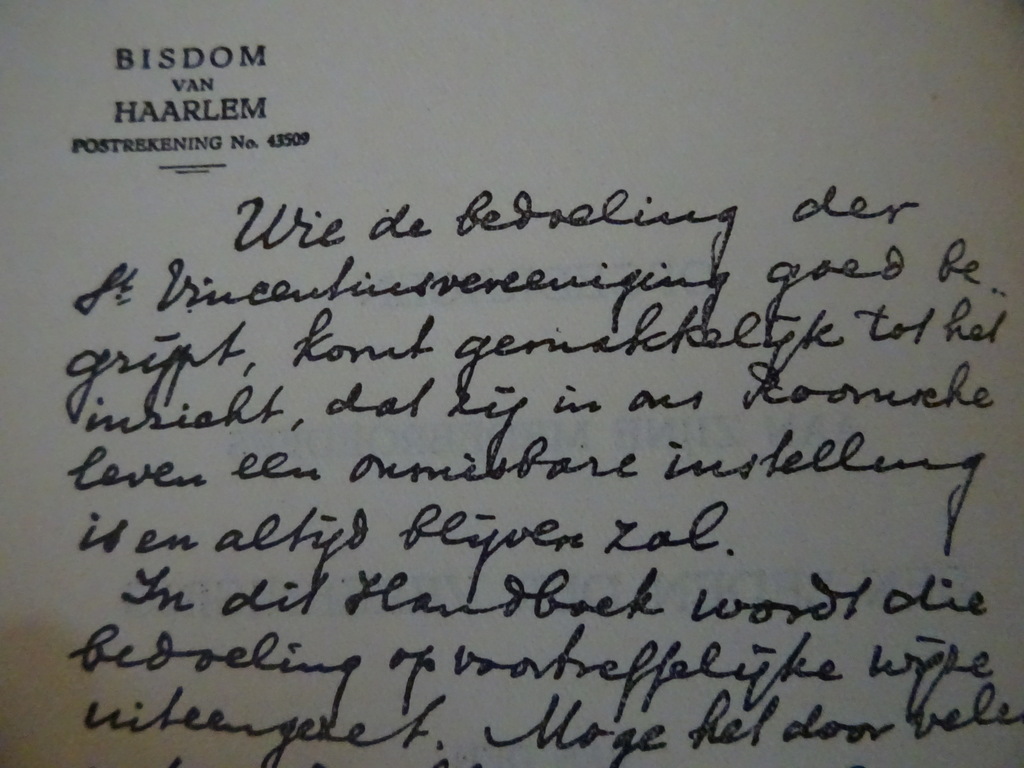 BISDOM
VAN
HAARLEM
POSTREKENING No. 43509
Wie de bedoeling der
St. Vincentiusvereeniging goed be-
grijpt, komt gemakkelijk tot het
inzicht, dat zij in ons Roomsche
leven een onmisbare instelling
is en altijd blijven zal.
In dit Handboek wordt die
bedoeling op voortreffelijke wijze
uiteengezet. Moge het door vele